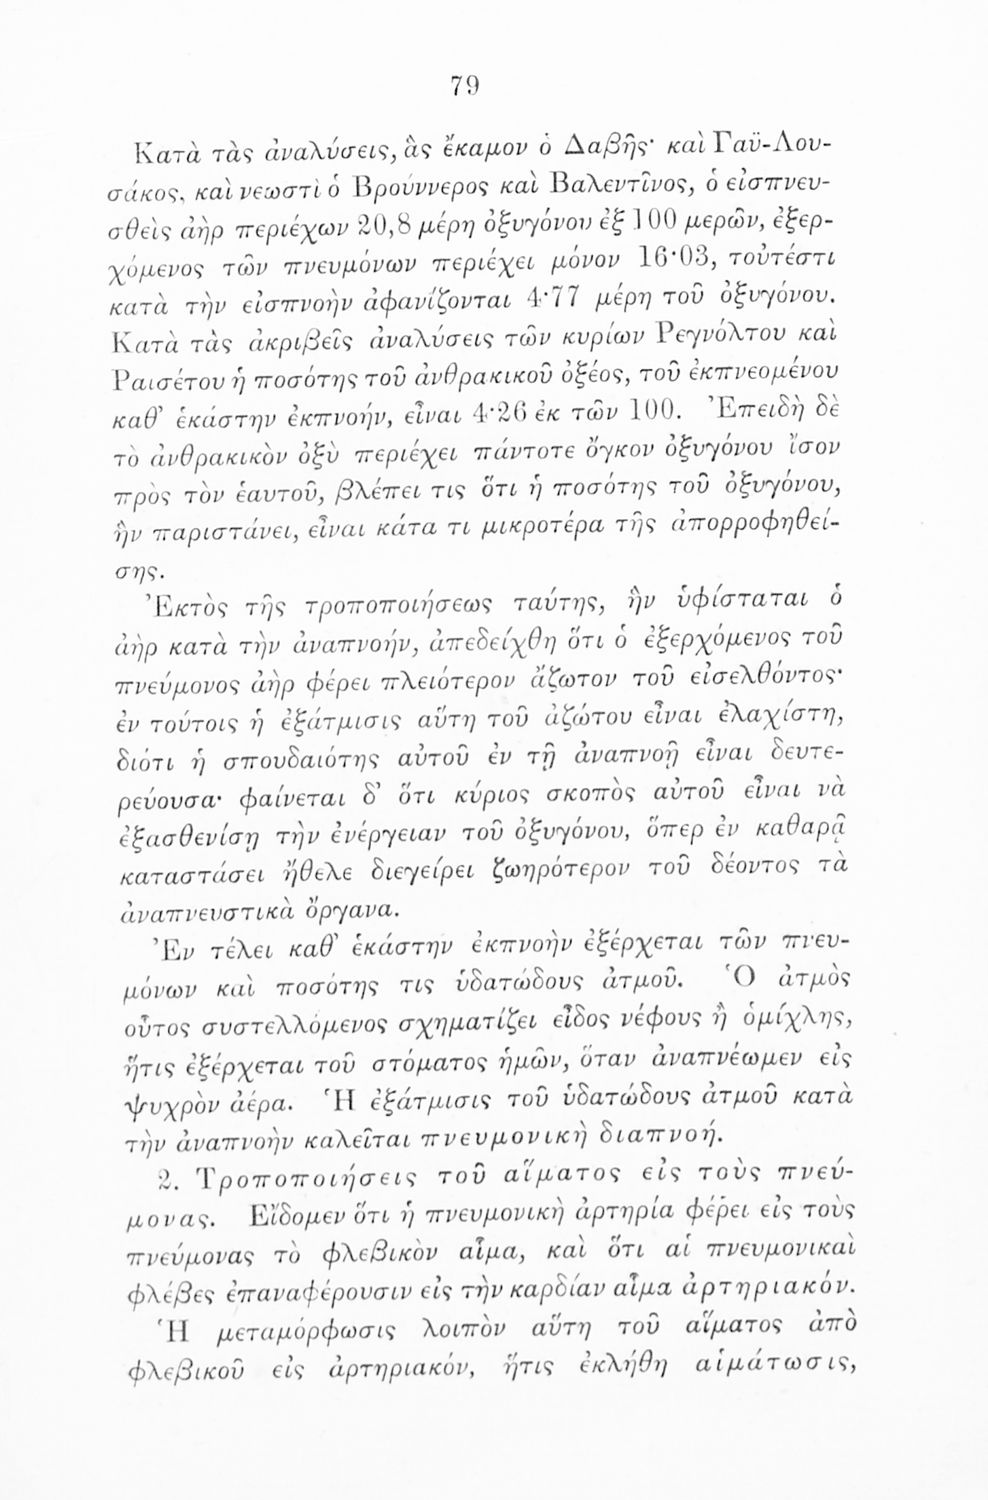 79
Κατὰ τὰς ἀναλύσεις, ἃς ἔκαμον ὁ Δαβῆς· καὶ Γαϋ-Λου-
σάκος, καὶ νεωστὶ ὁ Βρούννερος καὶ Βαλεντῖνος, ὁ εἰσπνευ-
σθεὶς ἀὴρ περιέχων 20,8 μέρη ὀξυγόνου ἐξ 100 μερῶν, ἐξερ-
χόμενος τῶν πνευμόνων περιέχει μόνον 16·03, τοὐτέστι
κατὰ τὴν εἰσπνοὴν ἀφανίζονται 4·77 μέρη τοῦ ὀξυγόνου.
Κατὰ τὰς ἀκριβεῖς ἀναλύσεις τῶν κυρίων Ρεγνόλτου καὶ
Ραισέτου ἡ ποσότης τοῦ ἀνθρακικοῦ ὀξέος, τοῦ ἐκπνεομένου
καθ’ ἑκάστην ἐκπνοήν, εἶναι 4·26 ἐκ τῶν 100. Ἐπειδὴ δὲ
τὸ ἀνθρακικὸν ὀξὺ περιέχει πάντοτε ὄγκον ὀξυγόνου ἴσον
πρὸς τὸν ἑαυτοῦ, βλέπει τις ὅτι ἡ ποσότης τοῦ ὀξυγόνου,
ἣν παριστάνει, εἶναι κάτα τι μικροτέρα τῆς ἀπορροφηθεί-
σης.
Ἐκτὸς τῆς τροποποιήσεως ταύτης, ἣν ὑφίσταται ὁ
ἀὴρ κατὰ τὴν ἀναπνοήν, ἀπεδείχθη ὅτι ὁ ἐξερχόμενος τοῦ
πνεύμονος ἀὴρ φέρει πλειότερον ἄζωτον τοῦ εἰσελθόντος·
ἐν τούτοις ἡ ἐξάτμισις αὕτη τοῦ ἀζώτου εἶναι ἐλαχίστη,
διότι ἡ σπουδαιότης αὐτοῦ ἐν τῇ ἀναπνοῇ εἶναι δευτε-
ρεύουσα· φαίνεται δ’ ὅτι κύριος σκοπὸς αὐτοῦ εἶναι νὰ
ἐξασθενίσῃ τὴν ἐνέργειαν τοῦ ὀξυγόνου, ὅπερ ἐν καθαρᾷ
καταστάσει ἤθελε διεγείρει ζωηρότερον τοῦ δέοντος τὰ
ἀναπνευστικὰ ὄργανα.
Ἐν τέλει καθ’ ἑκάστην ἐκπνοὴν ἐξέρχεται τῶν πνευ-
μόνων καὶ ποσότης τις ὑδατώδους ἀτμοῦ. Ὁ ἀτμὸς
οὗτος συστελλόμενος σχηματίζει εἶδος νέφους ἢ ὁμίχλης,
ἥτις ἐξέρχεται τοῦ στόματος ἡμῶν, ὅταν ἀναπνέωμεν εἰς
ψυχρὸν ἀέρα. Ἡ ἐξάτμισις τοῦ ὑδατώδους ἀτμοῦ κατὰ
τὴν ἀναπνοὴν καλεῖται πνευμονικὴ διαπνοή.
2. Τροποποιήσεις τοῦ αἵματος εἰς τοὺς πνεύ-
μονας. Εἴδομεν ὅτι ἡ πνευμονικὴ ἀρτηρία φέρει εἰς τοὺς
πνεύμονας τὸ φλεβικὸν αἷμα, καὶ ὅτι αἱ πνευμονικαὶ
φλέβες ἐπαναφέρουσιν εἰς τὴν καρδίαν αἷμα ἀρτηριακόν.
Ἡ μεταμόρφωσις λοιπὸν αὕτη τοῦ αἵματος ἀπὸ
φλεβικοῦ εἰς ἀρτηριακόν, ἥτις ἐκλήθη αἱμάτωσις,